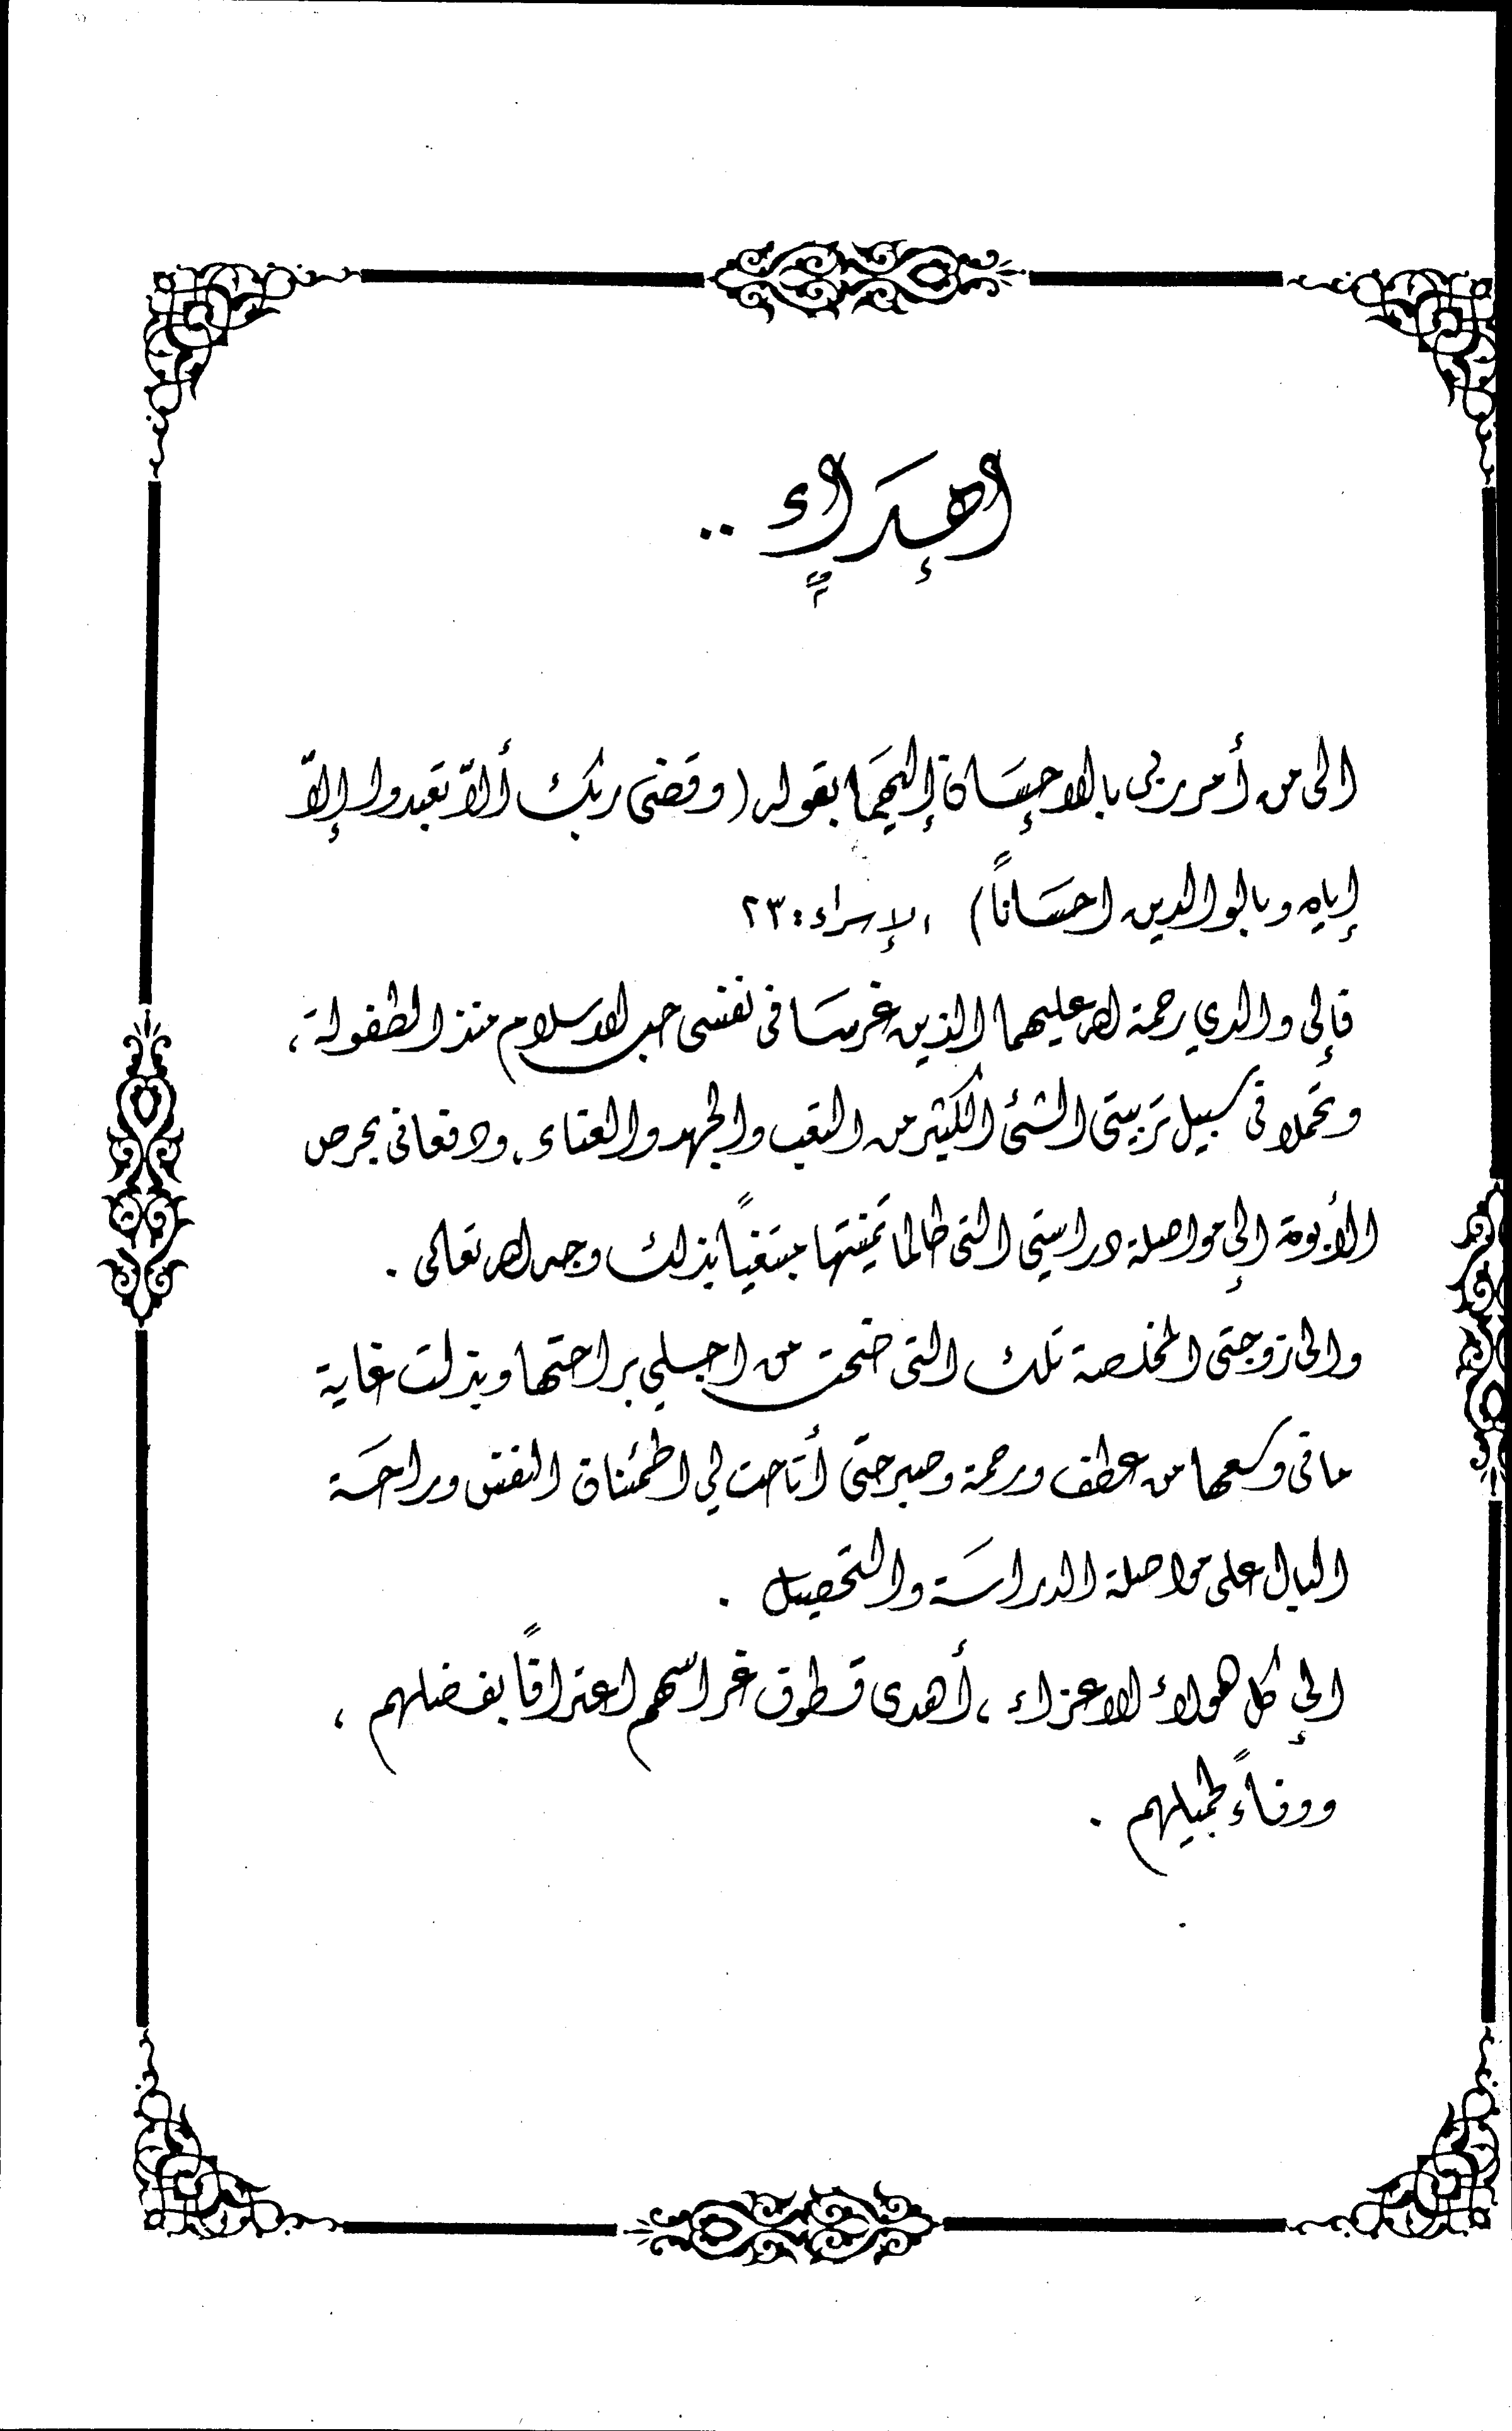 إهداء ..
الى من أمر ربي بالإحسان إليهما بقوله (وقضى ربك ألاّ تعبدوا إلاّ
إياه وبالوالدين احساناً) الإسراء: ٢٣
فإلى والدي رحمة الله عليهما الذين غرسا في نفسى حب الاسلام منذ الطفولة،
وتحملا في سبيل تربيتى الشئ الكثير من التعب والجهد والعناء، ودفعانى بحرص
الأبوة إلى مواصلة دراستي التى طالما تمنيتها مبتغياً بذلك وجه الله تعالى .
والى زوجتى المخلصة تلك التى ضحت من اجلي براحتها وبذلت غاية
ما في وسعها من عطف ورحمة وصبر حتى أتاحت لي اطمئنان النفس وراحة
البال على مواصلة الدراسة والتحصيل .
إلى كل هولاء الاعزاء، أهدى قطوف غراسهم اعترافاً بفضلهم ،
ووفاءً لجميلهم .